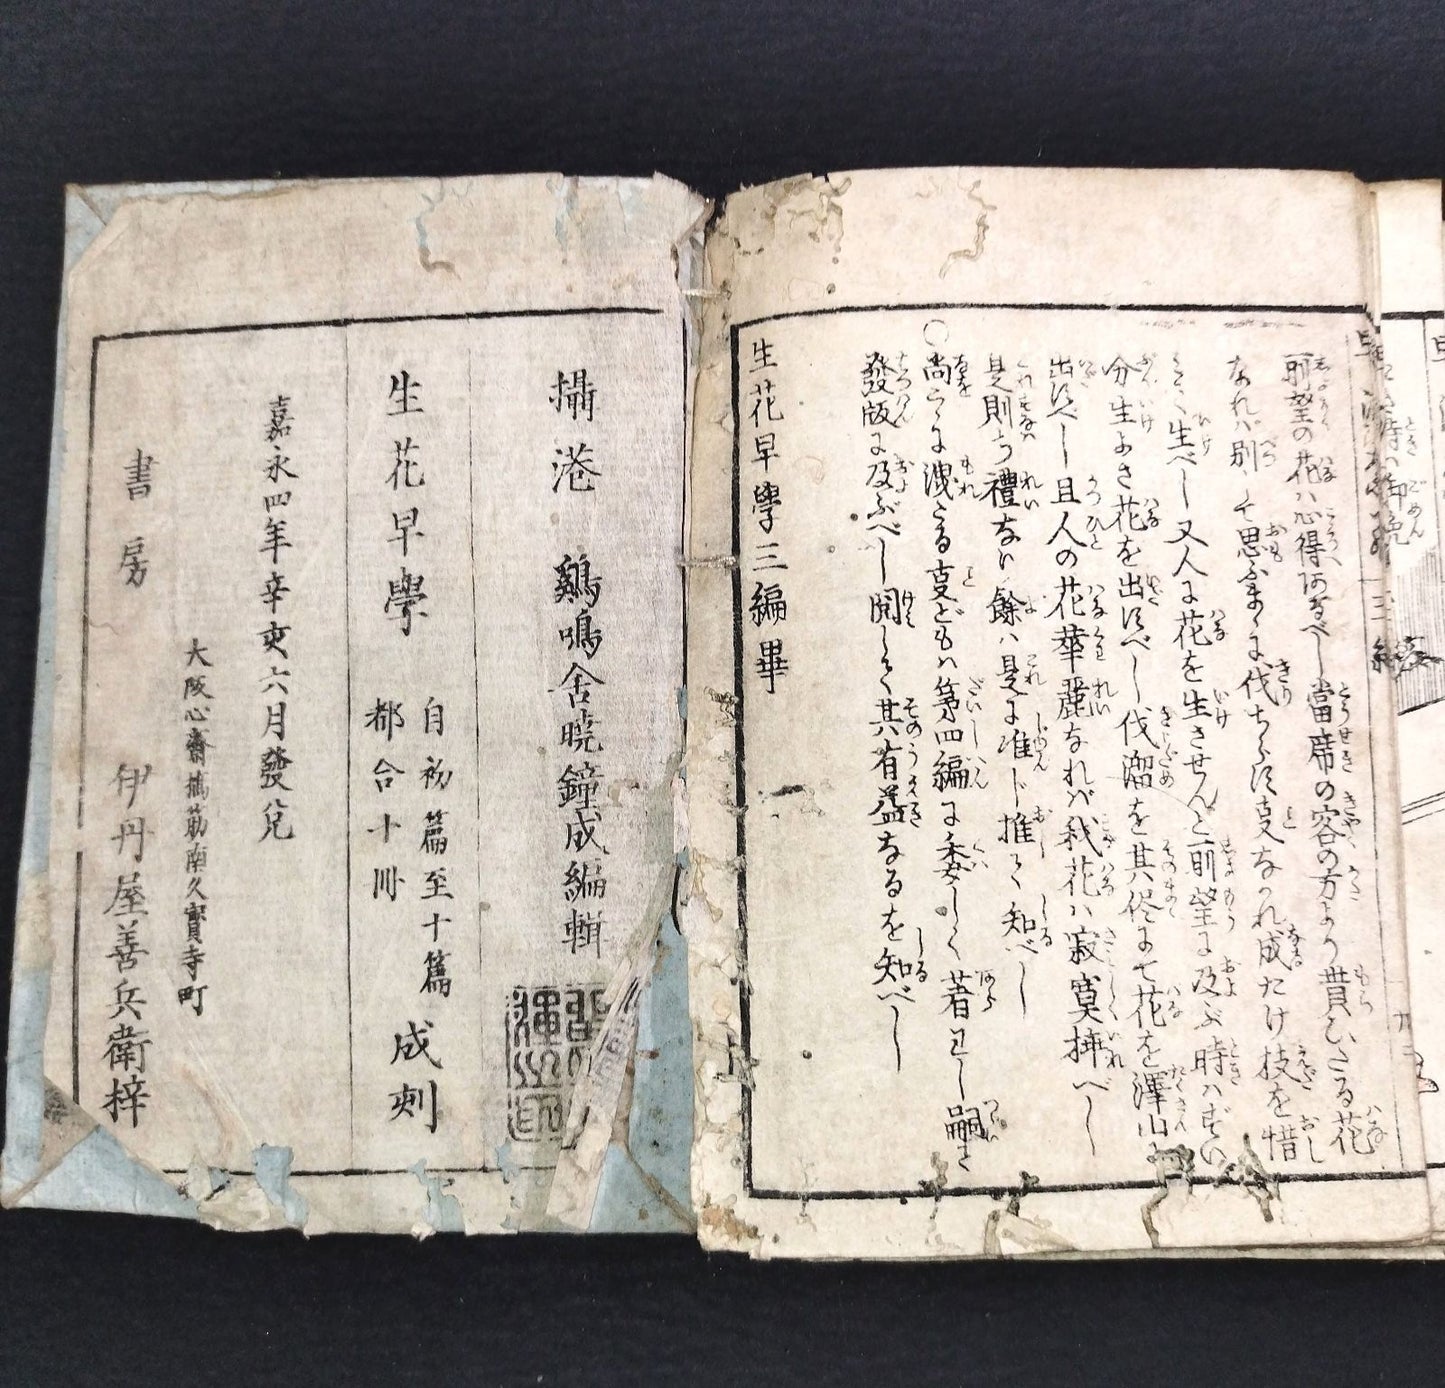 所望の花ハ心得あるべし當席の客の方より貰ひたる花
なれバ別して思ふまゝに伐ちらす事なかれ成たけ枝を惜
みて生べし又人に花を生させんと所望に及ぶ時ハずい
分生よき花を出すべし伐溜を其侭にて花を澤山に
出すべし且人の花華麗なれバ我花ハ寂寞挿べし
是則ち禮なり餘ハ是に准じ推て知べし
○尚こゝに洩たる事どもハ第四編に委しく著わし嗣て
發版に及ぶべし閲して其有益なるを知べし
生花早學三編畢
攝港 鷄鳴舎暁鐘成編輯
生花早學 自初篇至十篇 都合十冊 成刻
嘉永四年辛亥六月發兌
大阪心齋橋筋南久寶寺町
書房 伊丹屋善兵衛梓